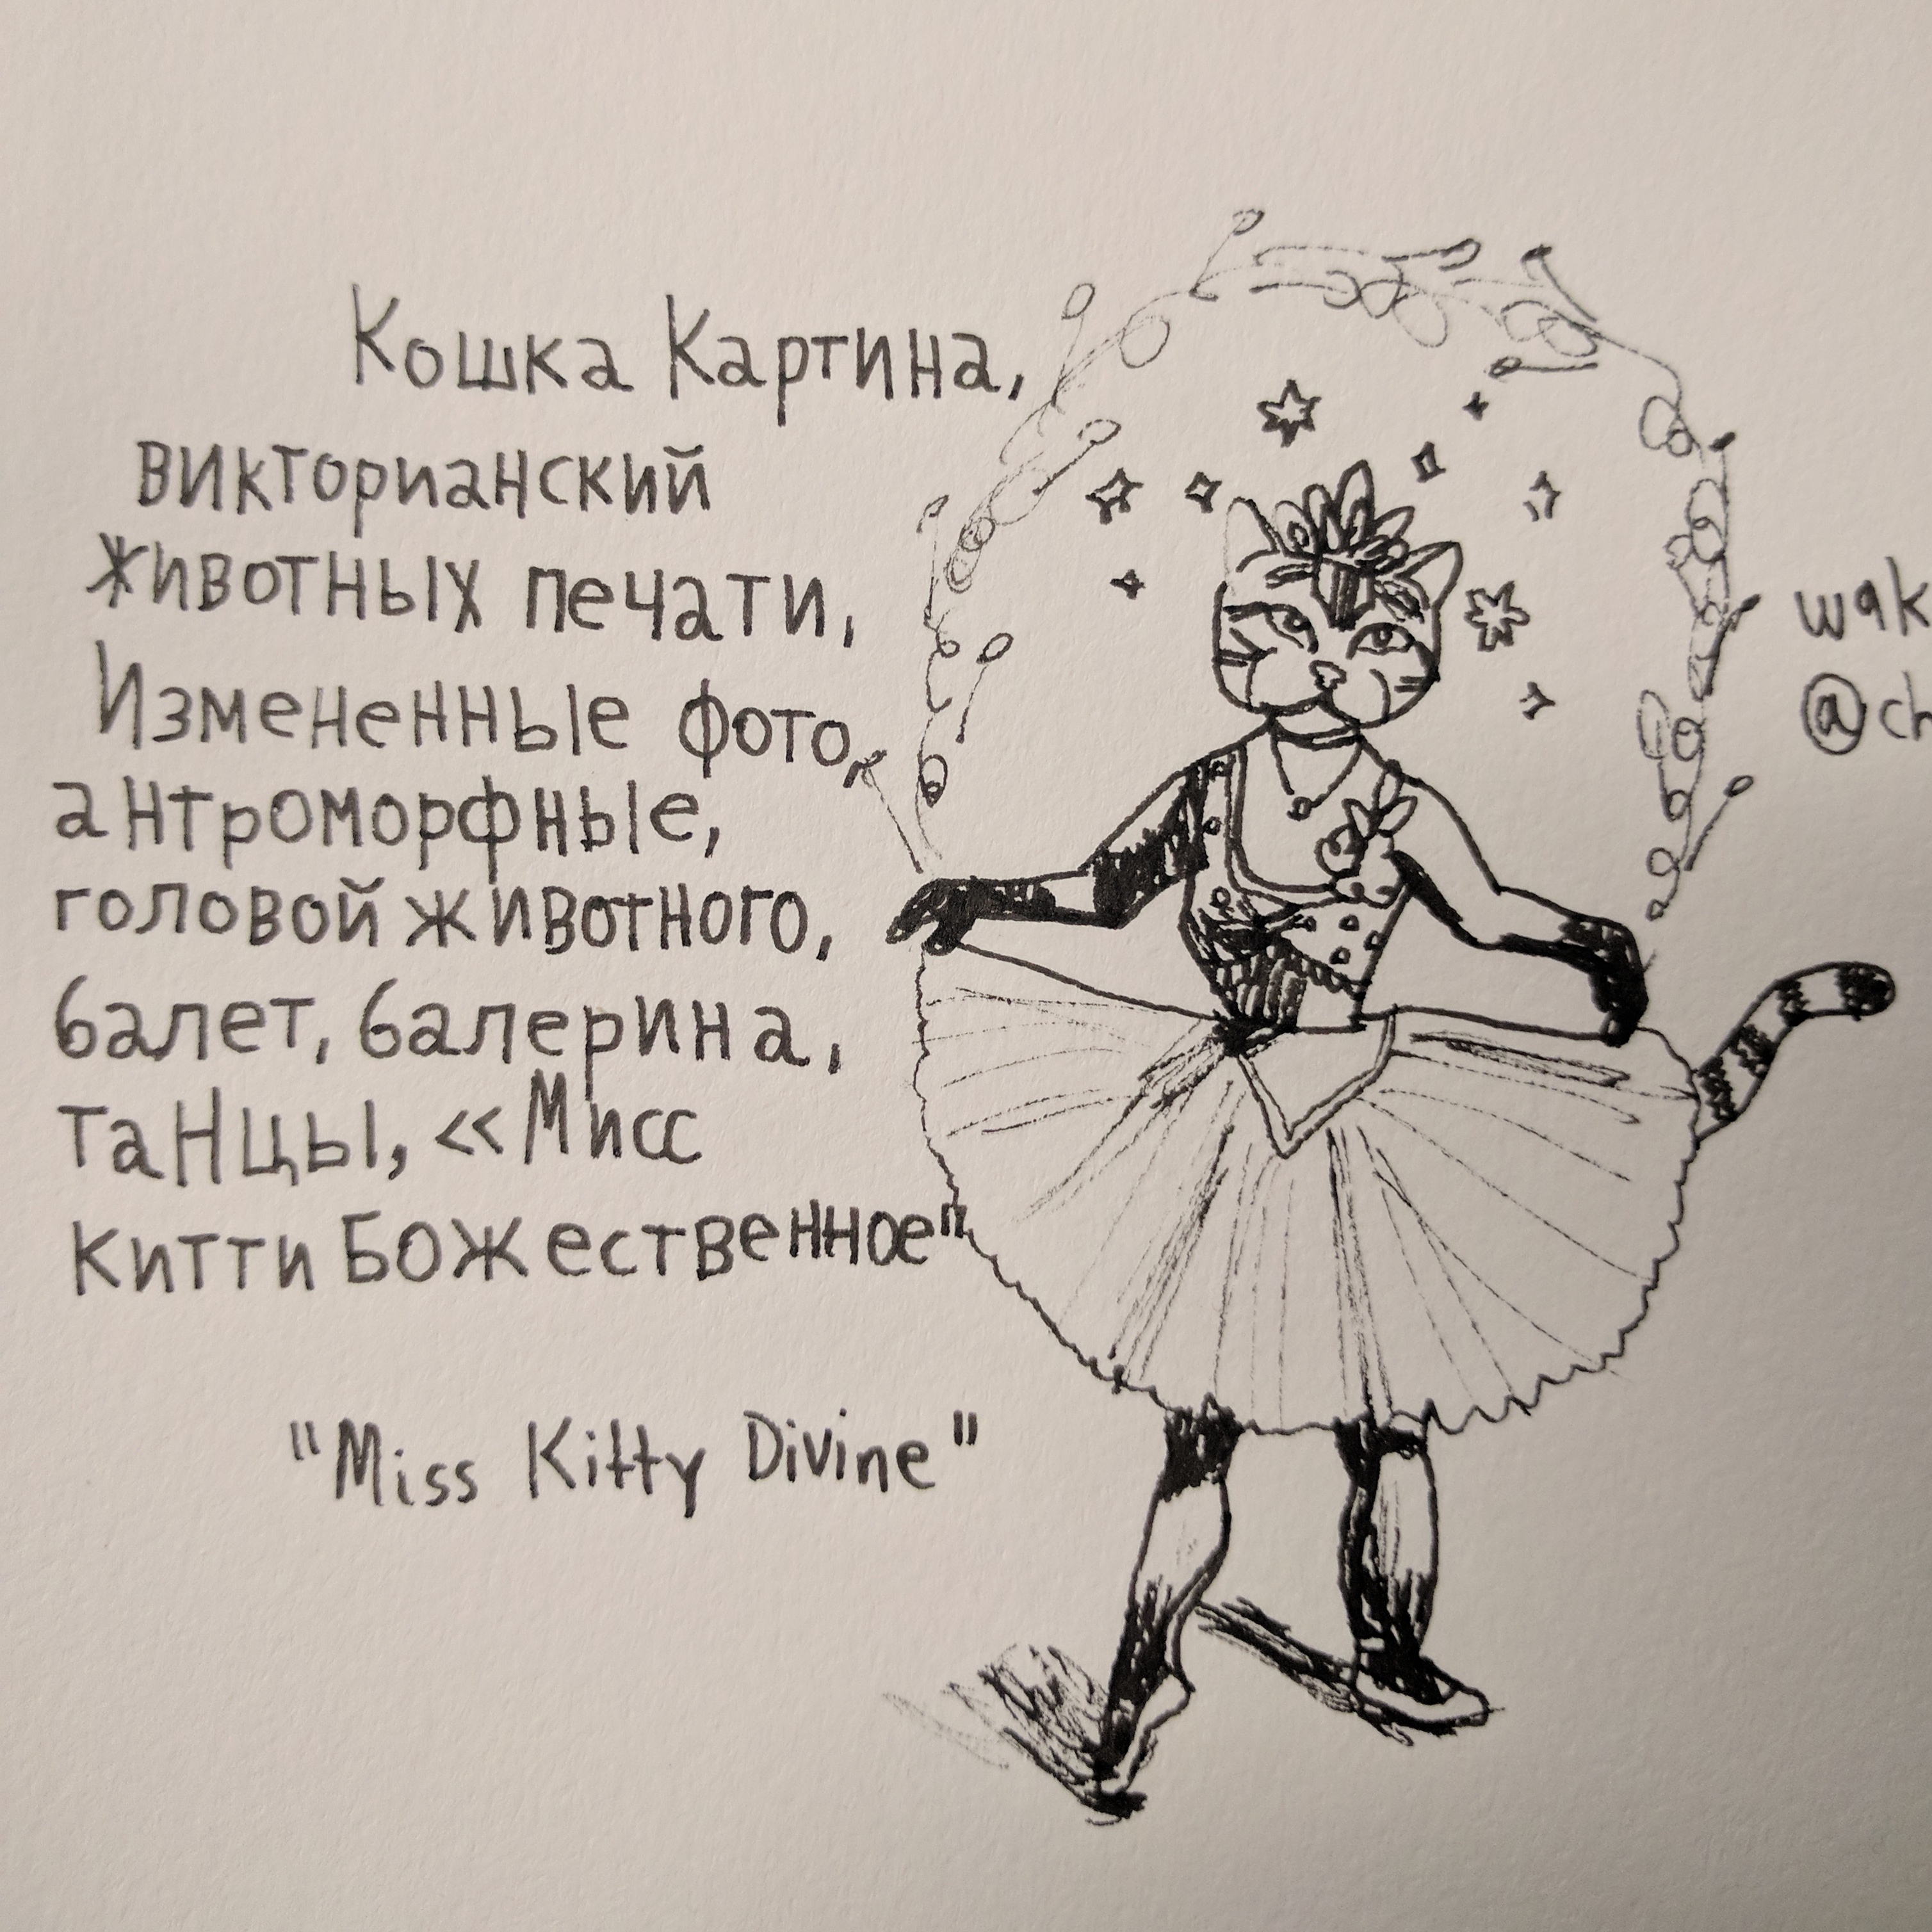 Кошка Картина,
викторианский
животных печати,
Измененные фото,
антроморфные,
головой животного,
балет, балерина,
танцы, «Мисс
китти Божественное"
"Miss Kitty Divine"
wak
@ch